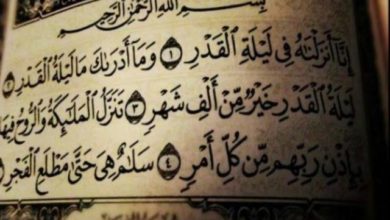 بِسْمِ اللَّهِ الرَّحْمَٰنِ الرَّحِيمِ
إِنَّا أَنزَلْنَٰهُ فِي لَيْلَةِ الْقَدْرِ ١ وَمَا أَدْرَىٰكَ مَا لَيْلَةُ الْقَدْرِ ٢
لَيْلَةُ الْقَدْرِ خَيْرٌ مِّنْ أَلْفِ شَهْرٍ ٣ تَنَزَّلُ الْمَلَٰٓئِكَةُ وَالرُّوحُ فِيهَا
بِإِذْنِ رَبِّهِم مِّن كُلِّ أَمْرٍ ٤ سَلَٰمٌ هِيَ حَتَّىٰ مَطْلَعِ الْفَجْرِ